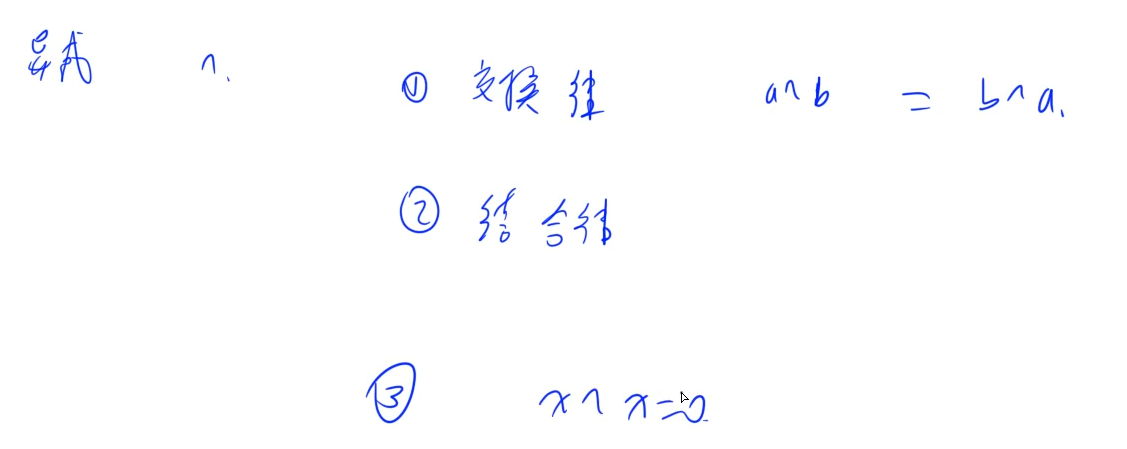 异或 ^.
① 交换律 a^b = b^a.
② 结合律
③ x^x=0